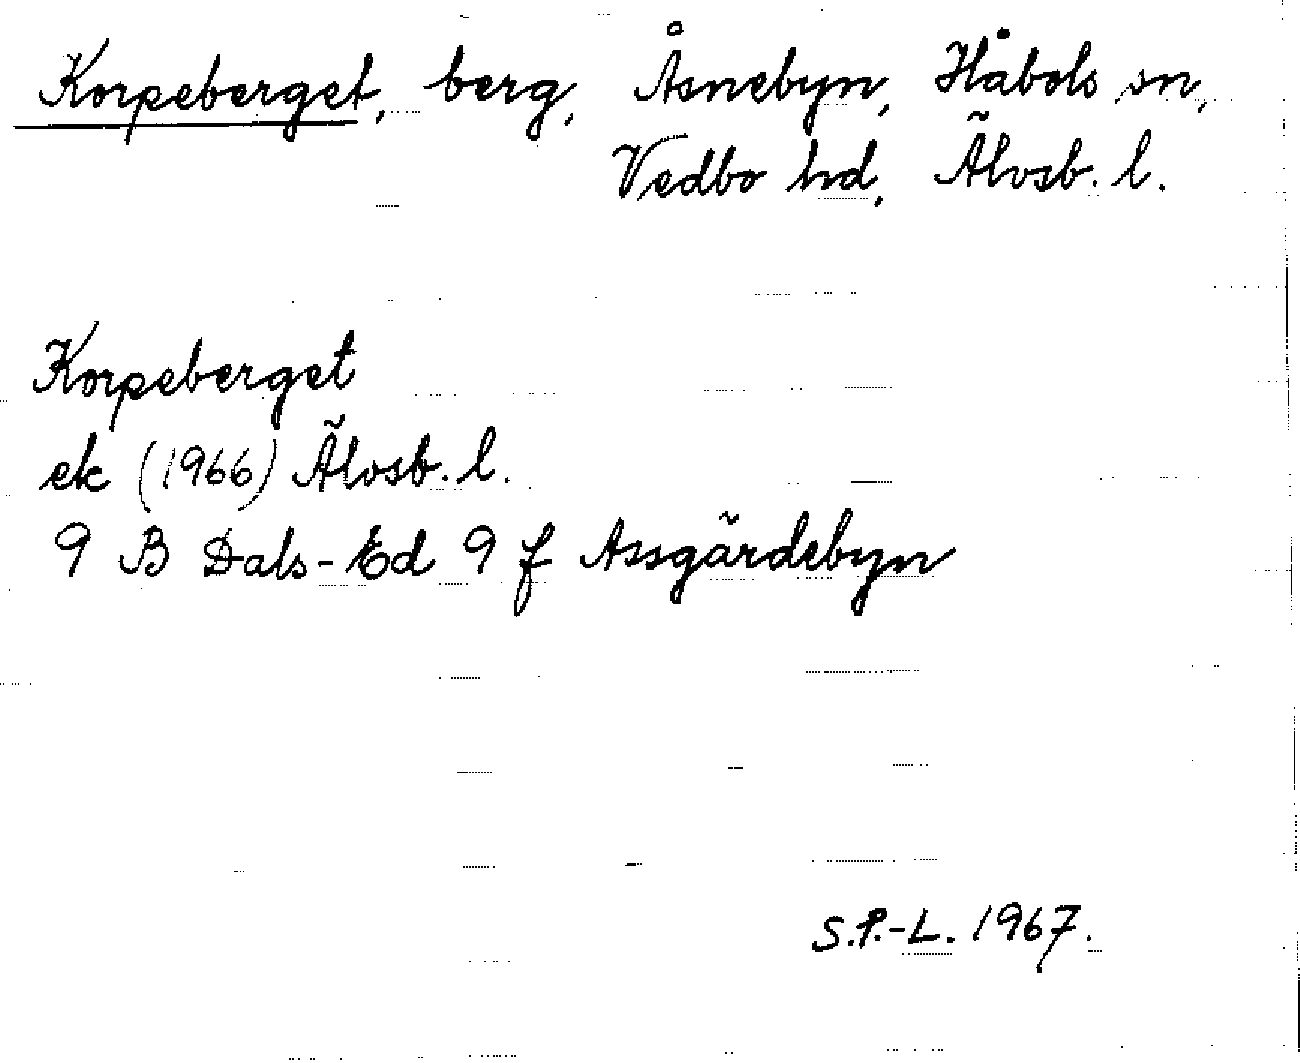 Korpeberget, berg, Åsnebyn, Håbols sn,
Vedbo hd, Älvsb. l.
Korpeberget
ek (1966) Älvsb. l.
9 B Dals-Ed 9 f Assgärdebyn
S.P.-L. 1967.